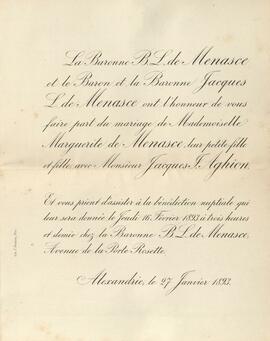 La Baronne B. L. de Menasce
et le Baron et la Baronne Jacques
L. de Menasce ont l'honneur de vous
faire part du mariage de Mademoiselle
Marguerite de Menasce, leur petite fille
et fille avec Monsieur Jacques I. Aghion.
Et vous prient d'assister à la bénédiction nuptiale qui
leur sera donnée le Jeudi 16 Février 1893 à trois heures
et demie chez la Baronne B. L. de Menasce,
Avenue de la Porte Rosette.
Alexandrie, le 27 Janvier 1893.